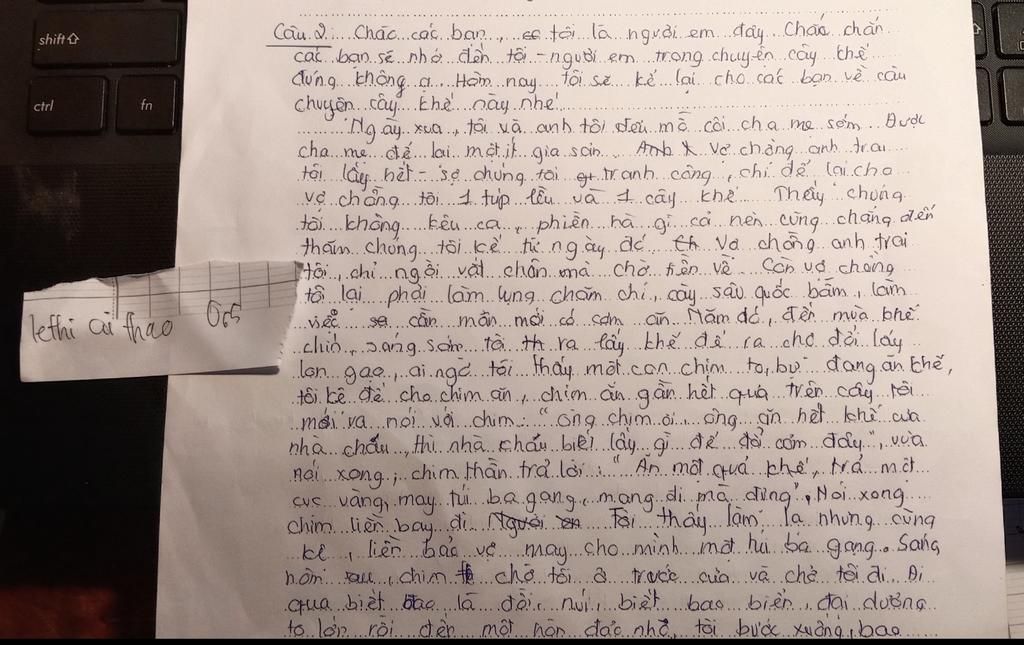 shift
ctrl
fn
lethi ai thao 065
Câu 2: Chắc các bạn, tôi là người em đây. Chắc chắn
các bạn sẽ nhớ đến tôi - người em trong chuyện cây khế
đúng không ạ. Hôm nay tôi sẽ kể lại cho các bạn về câu
chuyện cây khế này nhé.
Ngày xưa, tôi và anh tôi đều mồ côi cha mẹ sớm. Được
cha mẹ để lại một ít gia sản. Vợ chồng anh trai
tôi lấy hết - sợ chúng tôi tranh công, chỉ để lại cho
vợ chồng tôi 1 túp lều và 1 cây khế. Thấy chúng
tôi không kêu ca, phiền hà gì cả nên cũng chẳng đến
thăm chúng tôi kể từ ngày đó. Vợ chồng anh trai
tôi, chỉ ngồi vắt chân mà chờ tiền về. Còn vợ chồng
tôi lại phải làm lụng chăm chỉ, cày sâu quốc bẫm, làm
việc cần mẫn mới có cơm ăn. Năm đó, đến mùa khế
chín, sáng sớm tôi ra lấy khế để ra chợ đổi lấy
lon gạo, ai ngờ tôi thấy một con chim to, bự đang ăn khế,
tôi kệ để cho chim ăn, chim ăn gần hết quả trên cây tôi
mới ra nói với chim: "ông chim ơi, ông ăn hết khế của
nhà cháu, thì nhà cháu biết lấy gì để đổi cơm đây", vừa
nói xong, chim thần trả lời: "Ăn một quả khế, trả một
cục vàng, may túi ba gang, mang đi mà đựng", Nói xong
chim liền bay đi. Tôi thấy làm lạ nhưng cũng
kệ, liền bảo vợ may cho mình một túi ba gang. Sáng
hôm sau, chim chờ tôi ở trước cửa và chở tôi đi. Đi
qua biết bao là đồi, núi, biết bao biển, đại dương
to lớn rồi đến một hòn đảo nhỏ, tôi bước xuống, bao